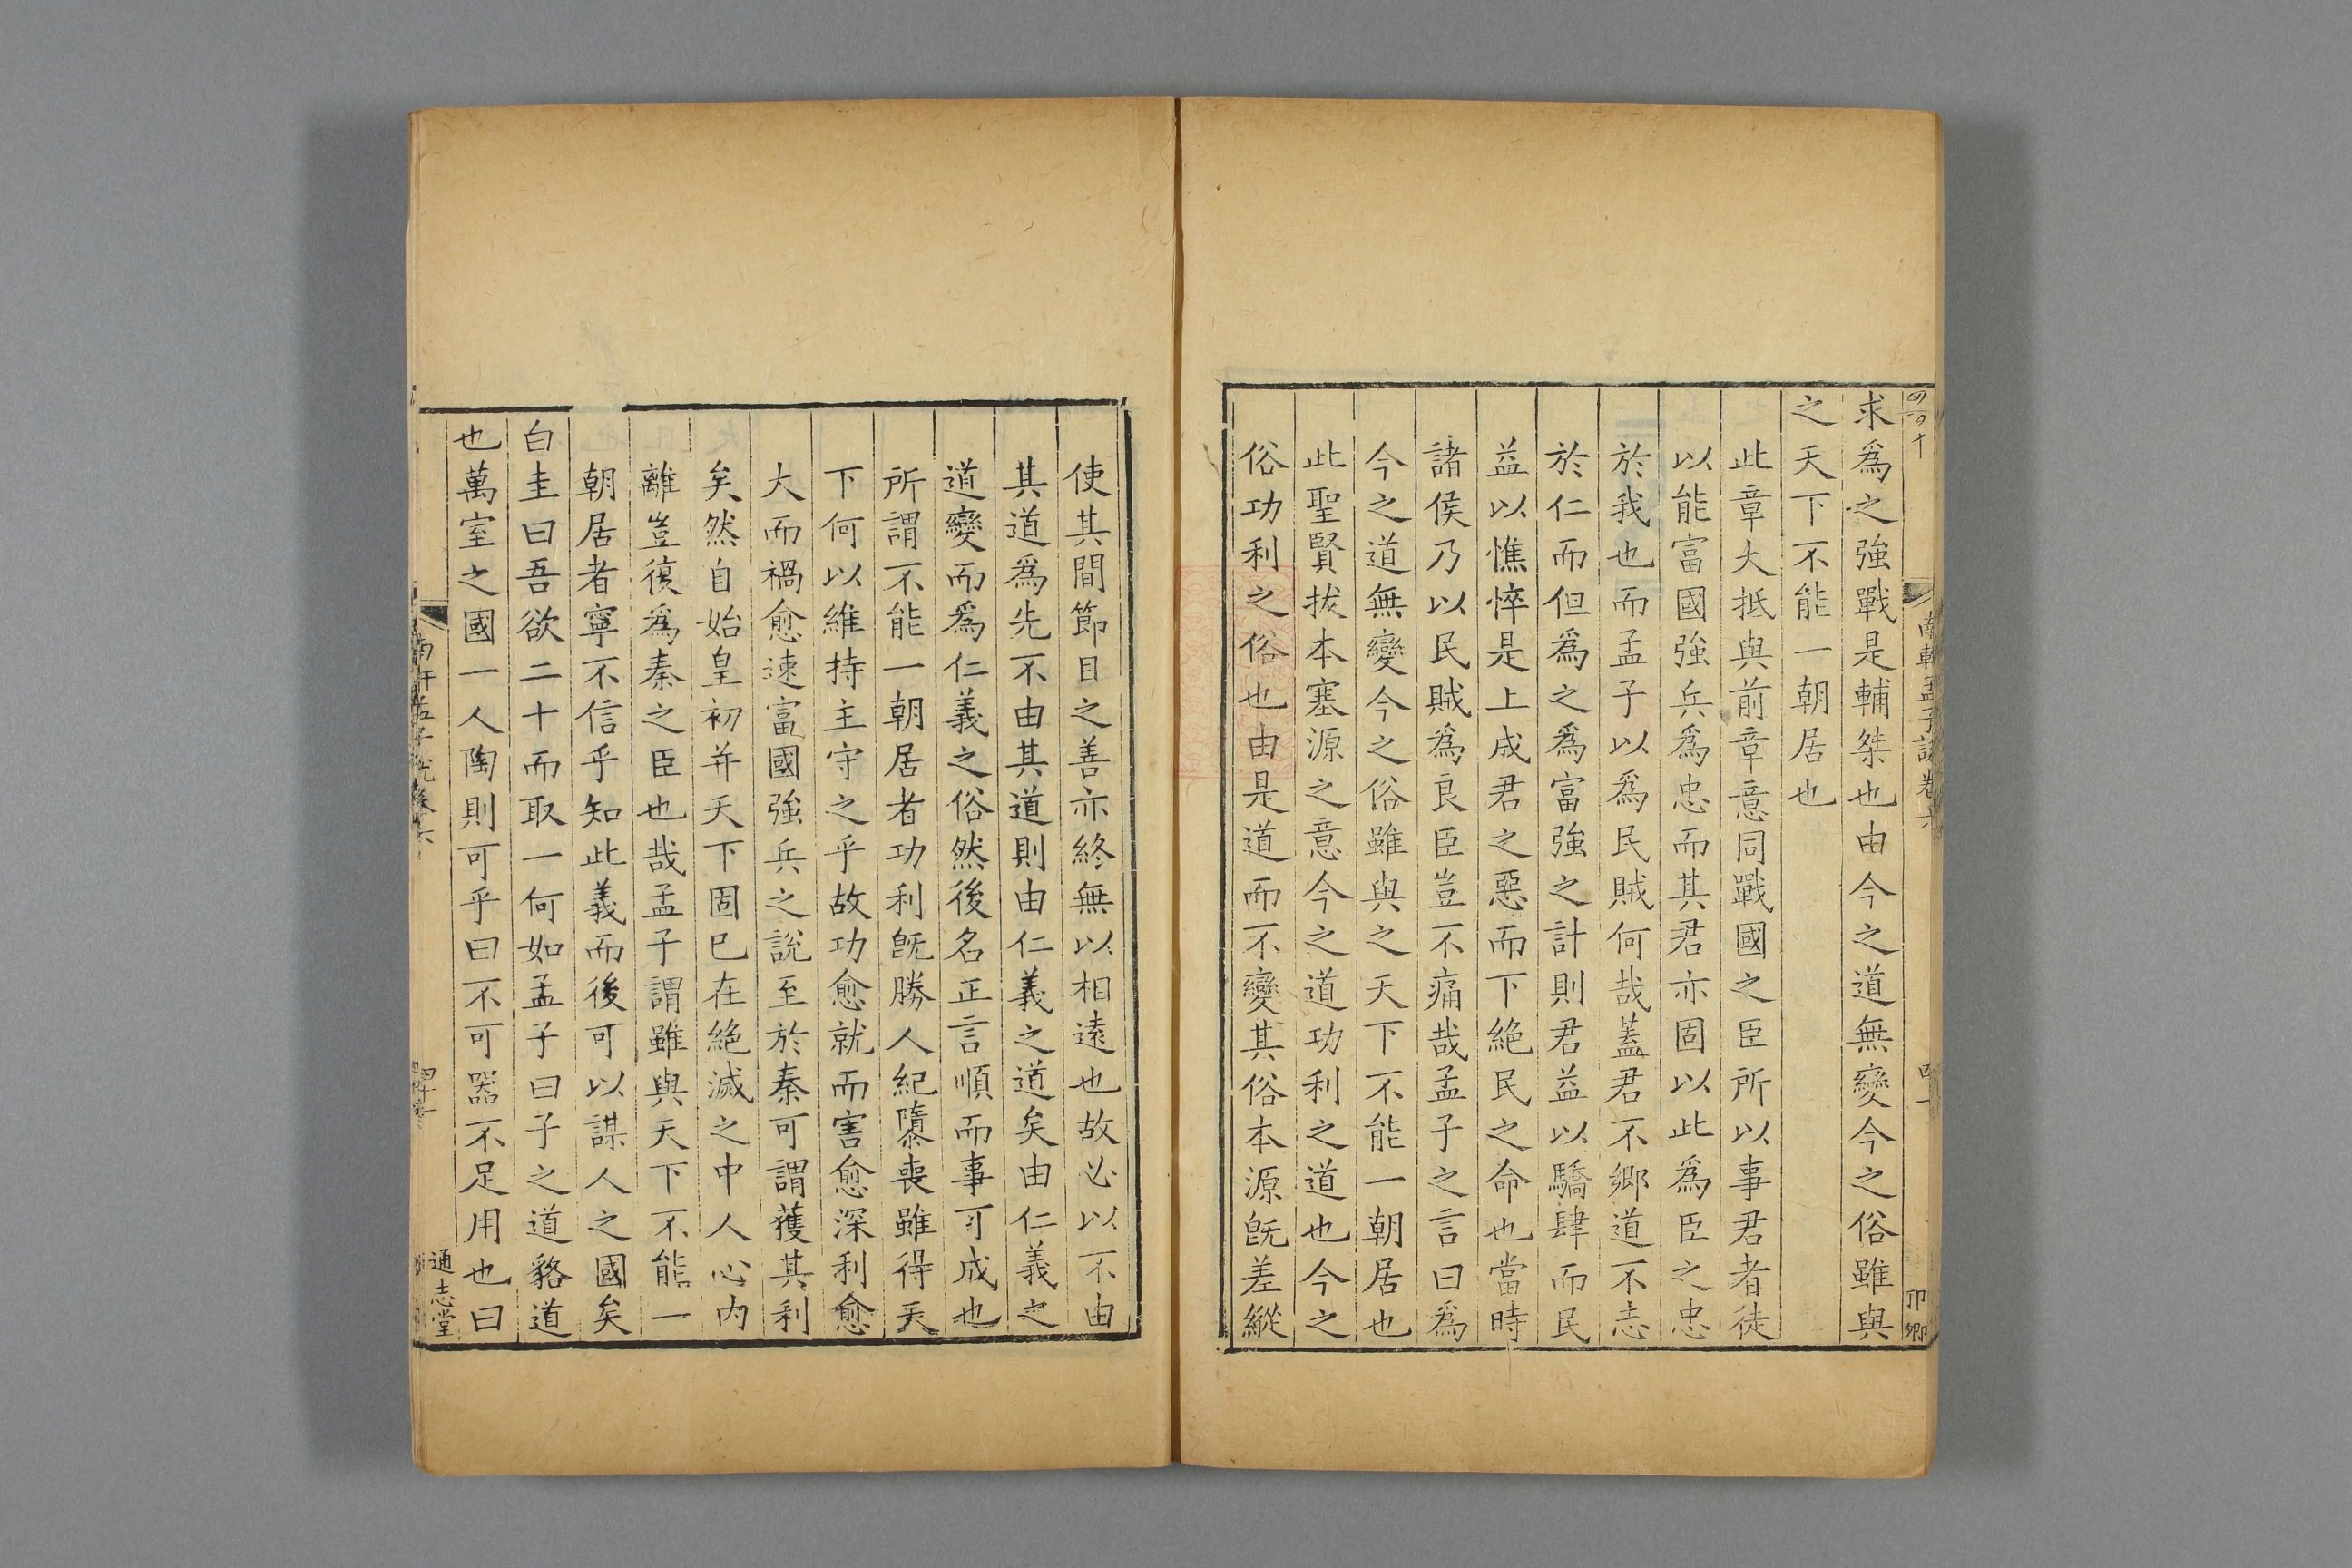 求爲之強戰是輔桀也由今之道無變今之俗雖與
之天下不能一朝居也
此章大抵與前章意同戰國之臣所以事君者徒
以能富國強兵爲忠而其君亦固以此爲臣之忠
於我也而孟子以爲民賊何哉蓋君不鄉道不志
於仁而但爲之爲富強之計則君益以驕肆而民
益以憔悴是上成君之惡而下絕民之命也當時
諸侯乃以民賊爲良臣豈不痛哉孟子之言曰爲
今之道無變今之俗雖與之天下不能一朝居也
此聖賢拔本塞源之意今之道功利之道也今之
俗功利之俗也由是道而不變其俗本源旣差縱
使其間節目之善亦終無以相遠也故必以不由
其道爲先不由其道則由仁義之道矣由仁義之
道變而爲仁義之俗然後名正言順而事可成也
所謂不能一朝居者功利旣勝人紀隳喪雖得天
下何以維持主守之乎故功愈就而害愈深利愈
大而禍愈速富國強兵之說至於秦可謂獲其利
矣然自始皇初并天下固已在絕滅之中人心內
離豈復爲秦之臣也哉孟子謂雖與天下不能一
朝居者寧不信乎知此義而後可以謀人之國矣
白圭曰吾欲二十而取一何如孟子曰子之道貉道
也萬室之國一人陶則可乎曰不可器不足用也曰
通志堂